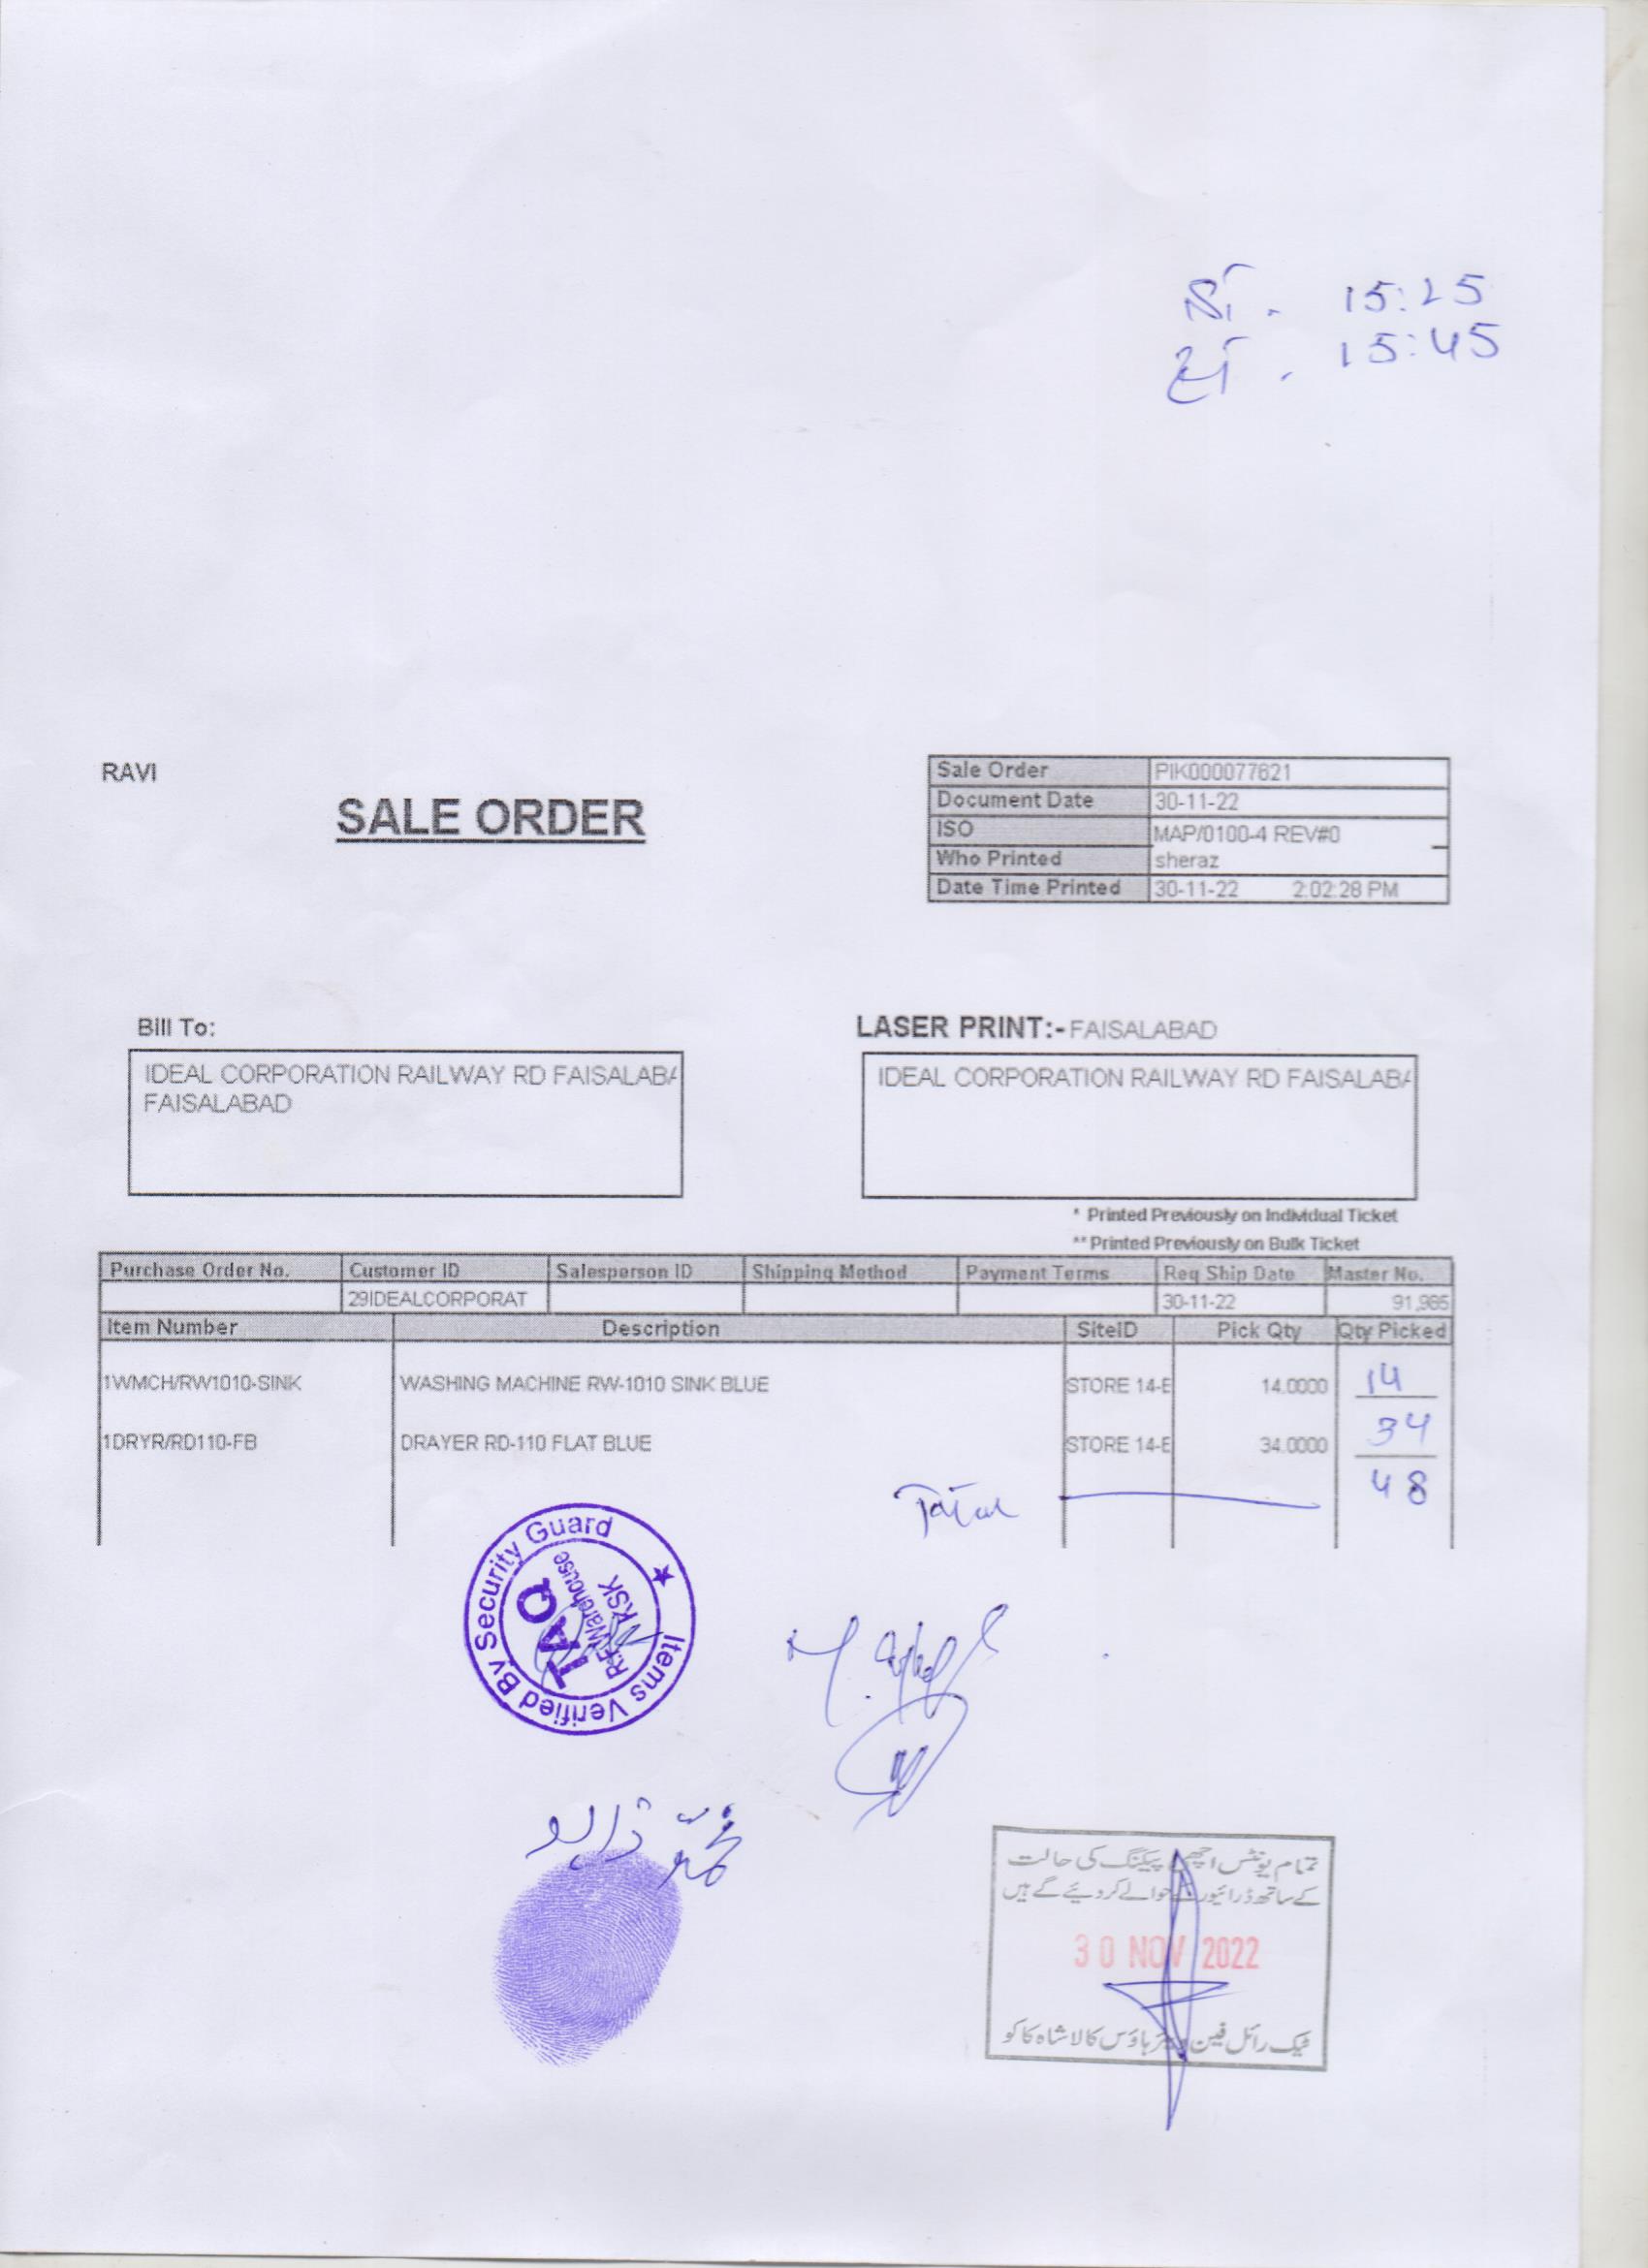 ST. 15:25
ET. 15:45
RAVI
SALE ORDER
Sale Order PIK000077621
Document Date 30-11-22
ISO MAP/0100-4 REV#0
Who Printed sheraz
Date Time Printed 30-11-22 2:02:28 PM
Bill To:
IDEAL CORPORATION RAILWAY RD FAISALABA
FAISALABAD
LASER PRINT:- FAISALABAD
IDEAL CORPORATION RAILWAY RD FAISALABA
* Printed Previously on Individual Ticket
** Printed Previously on Bulk Ticket
Purchase Order No. Customer ID Salesperson ID Shipping Method Payment Terms Req Ship Date Master No.
29IDEALCORPORAT 30-11-22 91,985
Item Number Description SiteID Pick Qty Qty Picked
1WMCH/RW1010-SINK WASHING MACHINE RW-1010 SINK BLUE STORE 14-E 14.0000 14
1DRYR/RD110-FB DRAYER RD-110 FLAT BLUE STORE 14-E 34.0000 34
Total 48
Items Verified By Security Guard
TAQ
R.F Warehouse
KSK
محمد زاہد
تمام یونٹس اچھی پیکنگ کی حالت
کے ساتھ ڈرائیور کے حوالے کر دیئے گئے ہیں
30 NOV 2022
ٹیک رائل فین ویئر ہاؤس کالا شاہ کاکو